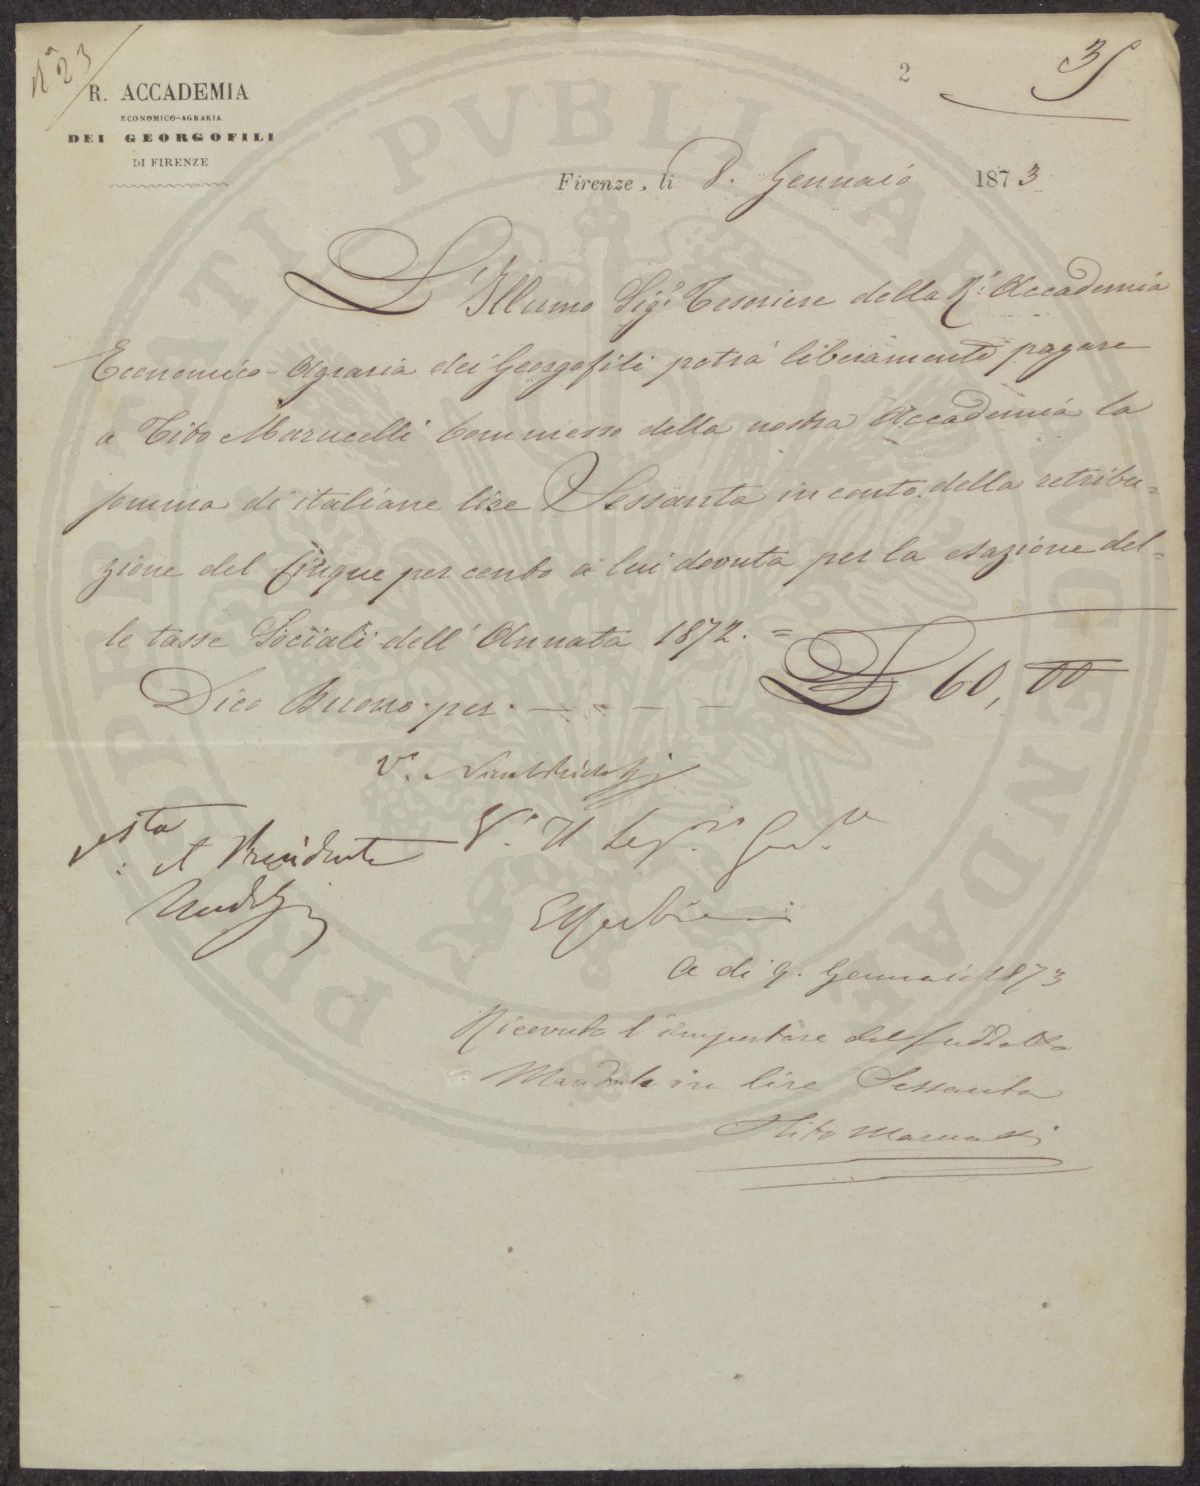 Nº 23
2
R. ACCADEMIA
ECONOMICO-AGRARIA
DEI GEORGOFILI
DI FIRENZE
Firenze, li 8. Gennaio 1873
L'Illumo Sigr Tesoriere della R. Accademia
Economico-Agraria dei Georgofili potrà liberamente pagare
a Tito Marucelli Commesso della nostra Accademia la
somma di italiane lire Sessanta in conto della retribu=
zione del Cinque per cento a lui dovuta per la esazione del=
le tasse Sociali dell'Annata 1872. =
Dico Buono per - - - - - L 60,00
Vº
Vista
Il Presidente
Vº Il Segº Gene
A di 9. Gennaio 1873
Ricevuto l'importare del suddetto
Mandato in lire Sessanta
Tito Marucelli
PROSPERITATI PVBLICAE AVGENDAE